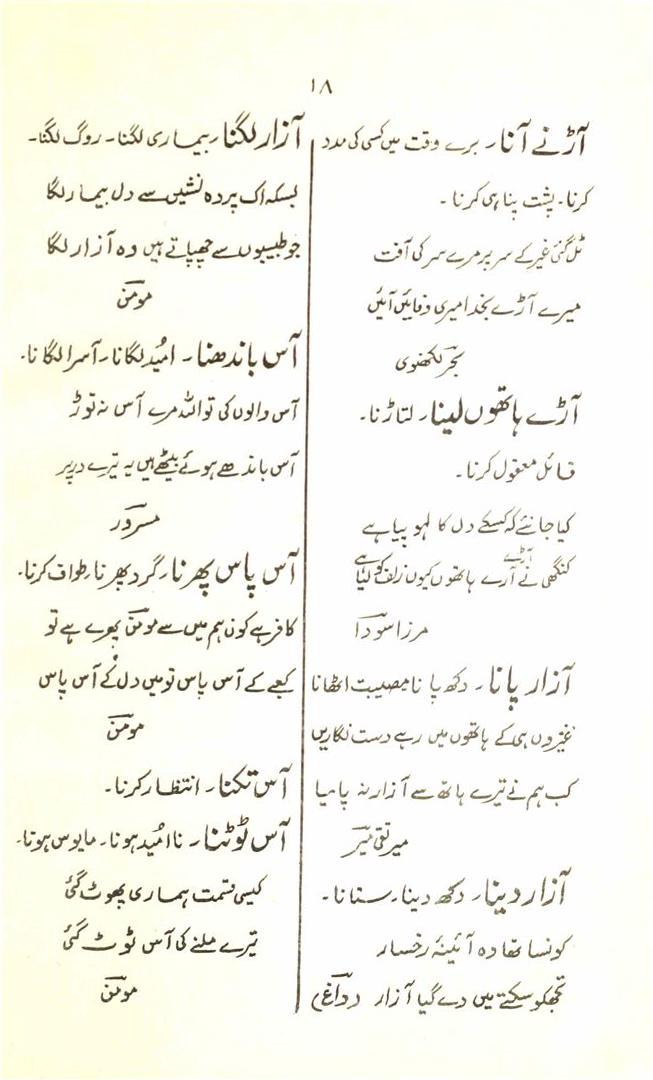 ۱۸
آڑنے آنا۔ برے وقت میں کسی کی مدد
کرنا۔ پشت پناہی کرنا۔
ٹل گئی غیر کے سر پر مرے سر کی آفت
میرے آڑے بخدا میری وفائیں آئیں
بحر لکھنوی
آڑے ہاتھوں لینا۔ لتاڑنا۔
قائل معقول کرنا۔
کیا جانئے کہ کسکے دل کا لہو پیا ہے
کنگھی نے آرے ہاتھوں کیوں زلف کو لیا ہے
آڑے
مرزا سودا
آزار پانا۔ دکھ پانا مصیبت اٹھانا
غیروں ہی کے ہاتھوں میں رہے دست نگاریں
کب ہم نے تیرے ہاتھ سے آزار نہ پایا
میر تقی میر
آزار دینا۔ دکھ دینا۔ ستانا۔
کونسا تھا وہ آئینۂ رخسار
تجھکو سکتے میں دے گیا آزار (داغ)
آزار لگنا۔ بیماری لگنا۔ روگ لگنا۔
بسکہ اک پردہ نشیں سے دل بیمار لگا
جو طبیبوں سے چھپاتے ہیں وہ آزار لگا
مومن
آس باندھنا۔ امید لگانا۔ آسرا لگانا۔
آس والوں کی تو اللہ مرے آس نہ توڑ
آس باندھے ہوئے بیٹھے ہیں یہ تیرے در پر
مسرور
آس پاس پھرنا۔ گرد پھرنا۔ طواف کرنا۔
کافر ہے کون ہم میں سے مومن پھرے ہے تو
کعبے کے آس پاس تو میں دل کے آس پاس
مومن
آس تکنا۔ انتظار کرنا۔
آس ٹوٹنا۔ ناامید ہونا۔ مایوس ہونا۔
کیسی قسمت ہماری پھوٹ گئی
تیرے ملنے کی آس ٹوٹ گئی
مومن